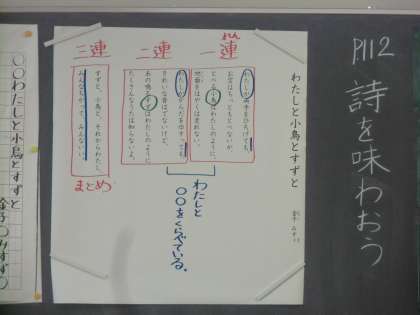 P.112
詩を味わおう
わたしと小鳥とすずと
金子 みすゞ
れん
一連
わたしが両手をひろげても、
お空はちっともとべないが、
とべる小鳥はわたしのように、
地面をはやくは走れない。
二連
わたしがからだをゆすっても、
きれいな音はでないけど、
あの鳴るすずはわたしのように、
たくさんなうたは知らないよ。
わたしと
〇〇をくらべている。
三連
すずと、小鳥と、それからわたし、
みんなちがって、みんないい。
まとめ
〇〇わたしと小鳥とすずと
金子〇みすず〇